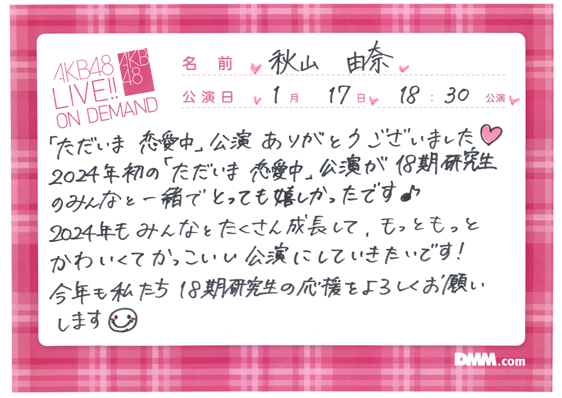 AKB48
LIVE!!
ON DEMAND
AKB
48
名前 秋山 由奈
公演日 1月 17日 18:30 公演
「ただいま 恋愛中」公演 ありがとうございました
2024年初の「ただいま 恋愛中」公演が 18期研究生
のみんなと一緒でとっても嬉しかったです♪
2024年もみんなとたくさん成長して、もっともっと
かわいくてかっこいい 公演にしていきたいです!
今年も私たち 18期研究生の応援をよろしくお願い
します
DMM.com